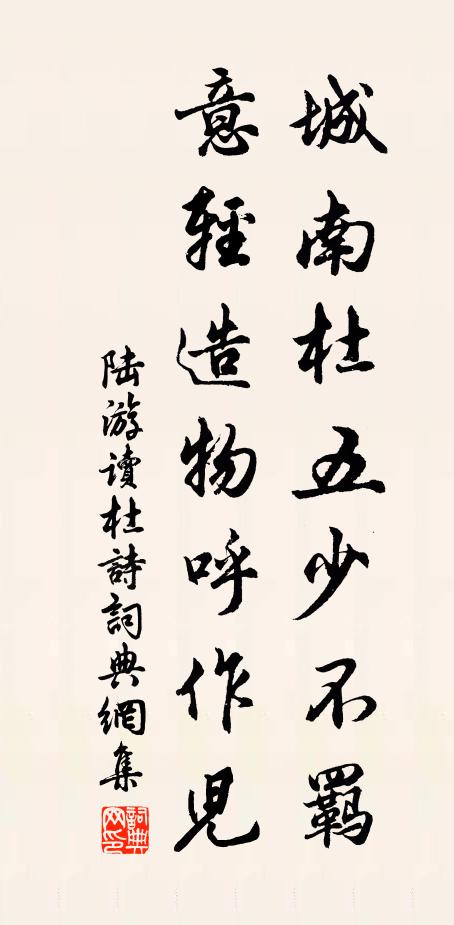 城南杜五少不羈
意輕造物呼作兒
陸游讀杜詩詞典網集
詞典网印